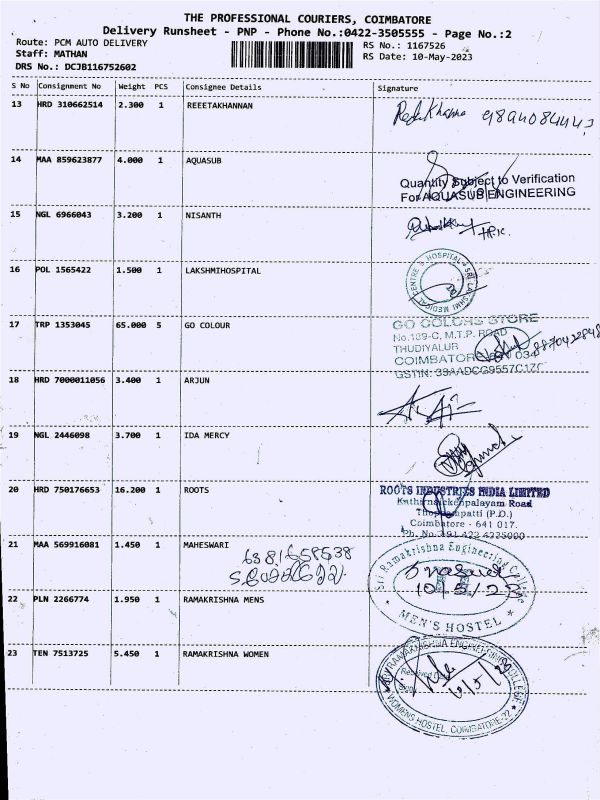 THE PROFESSIONAL COURIERS, COIMBATORE
Delivery Runsheet - PNP - Phone No.:0422-3505555 - Page No.:2
Route: PCM AUTO DELIVERY
Staff: MATHAN
DRS No.: DCJB116752602
RS No.: 1167526
RS Date: 10-May-2023
S No Consignment No Weight PCS Consignee Details Signature
13 HRD 310662514 2.300 1 REEETAKHANNAN
14 MAA 859623877 4.000 1 AQUASUB
Quantity Subject to Verification
For AQUASUB ENGINEERING
15 NGL 6966043 3.200 1 NISANTH
16 POL 1565422 1.500 1 LAKSHMIHOSPITAL
SRI LAKSHMI MEDICAL CENTRE & HOSPITAL
17 TRP 1353045 65.000 5 GO COLOUR
GO COLORS STORE
No.189-C, M.T.P. ROAD
THUDIYALUR
COIMBATORE
8870422848
GSTIN: 33AADCG9557C1ZC
18 HRD 7000011056 3.400 1 ARJUN
19 NGL 2446098 3.700 1 IDA MERCY
20 HRD 750176653 16.200 1 ROOTS
ROOTS INDUSTRIES INDIA LIMITED
Kathirnaickenpalayam Road
Thoppampatti (P.O.)
Coimbatore - 641 017.
Ph. No.+91 422 4225000
21 MAA 569916081 1.450 1 MAHESWARI
6381658538
Sri Ramakrishna Engineering College
10/5/23
MEN'S HOSTEL
22 PLN 2266774 1.950 1 RAMAKRISHNA MENS
23 TEN 7513725 5.450 1 RAMAKRISHNA WOMEN
SRI RAMAKRISHNA ENGINEERING COLLEGE
WOMENS HOSTEL, COIMBATORE-22